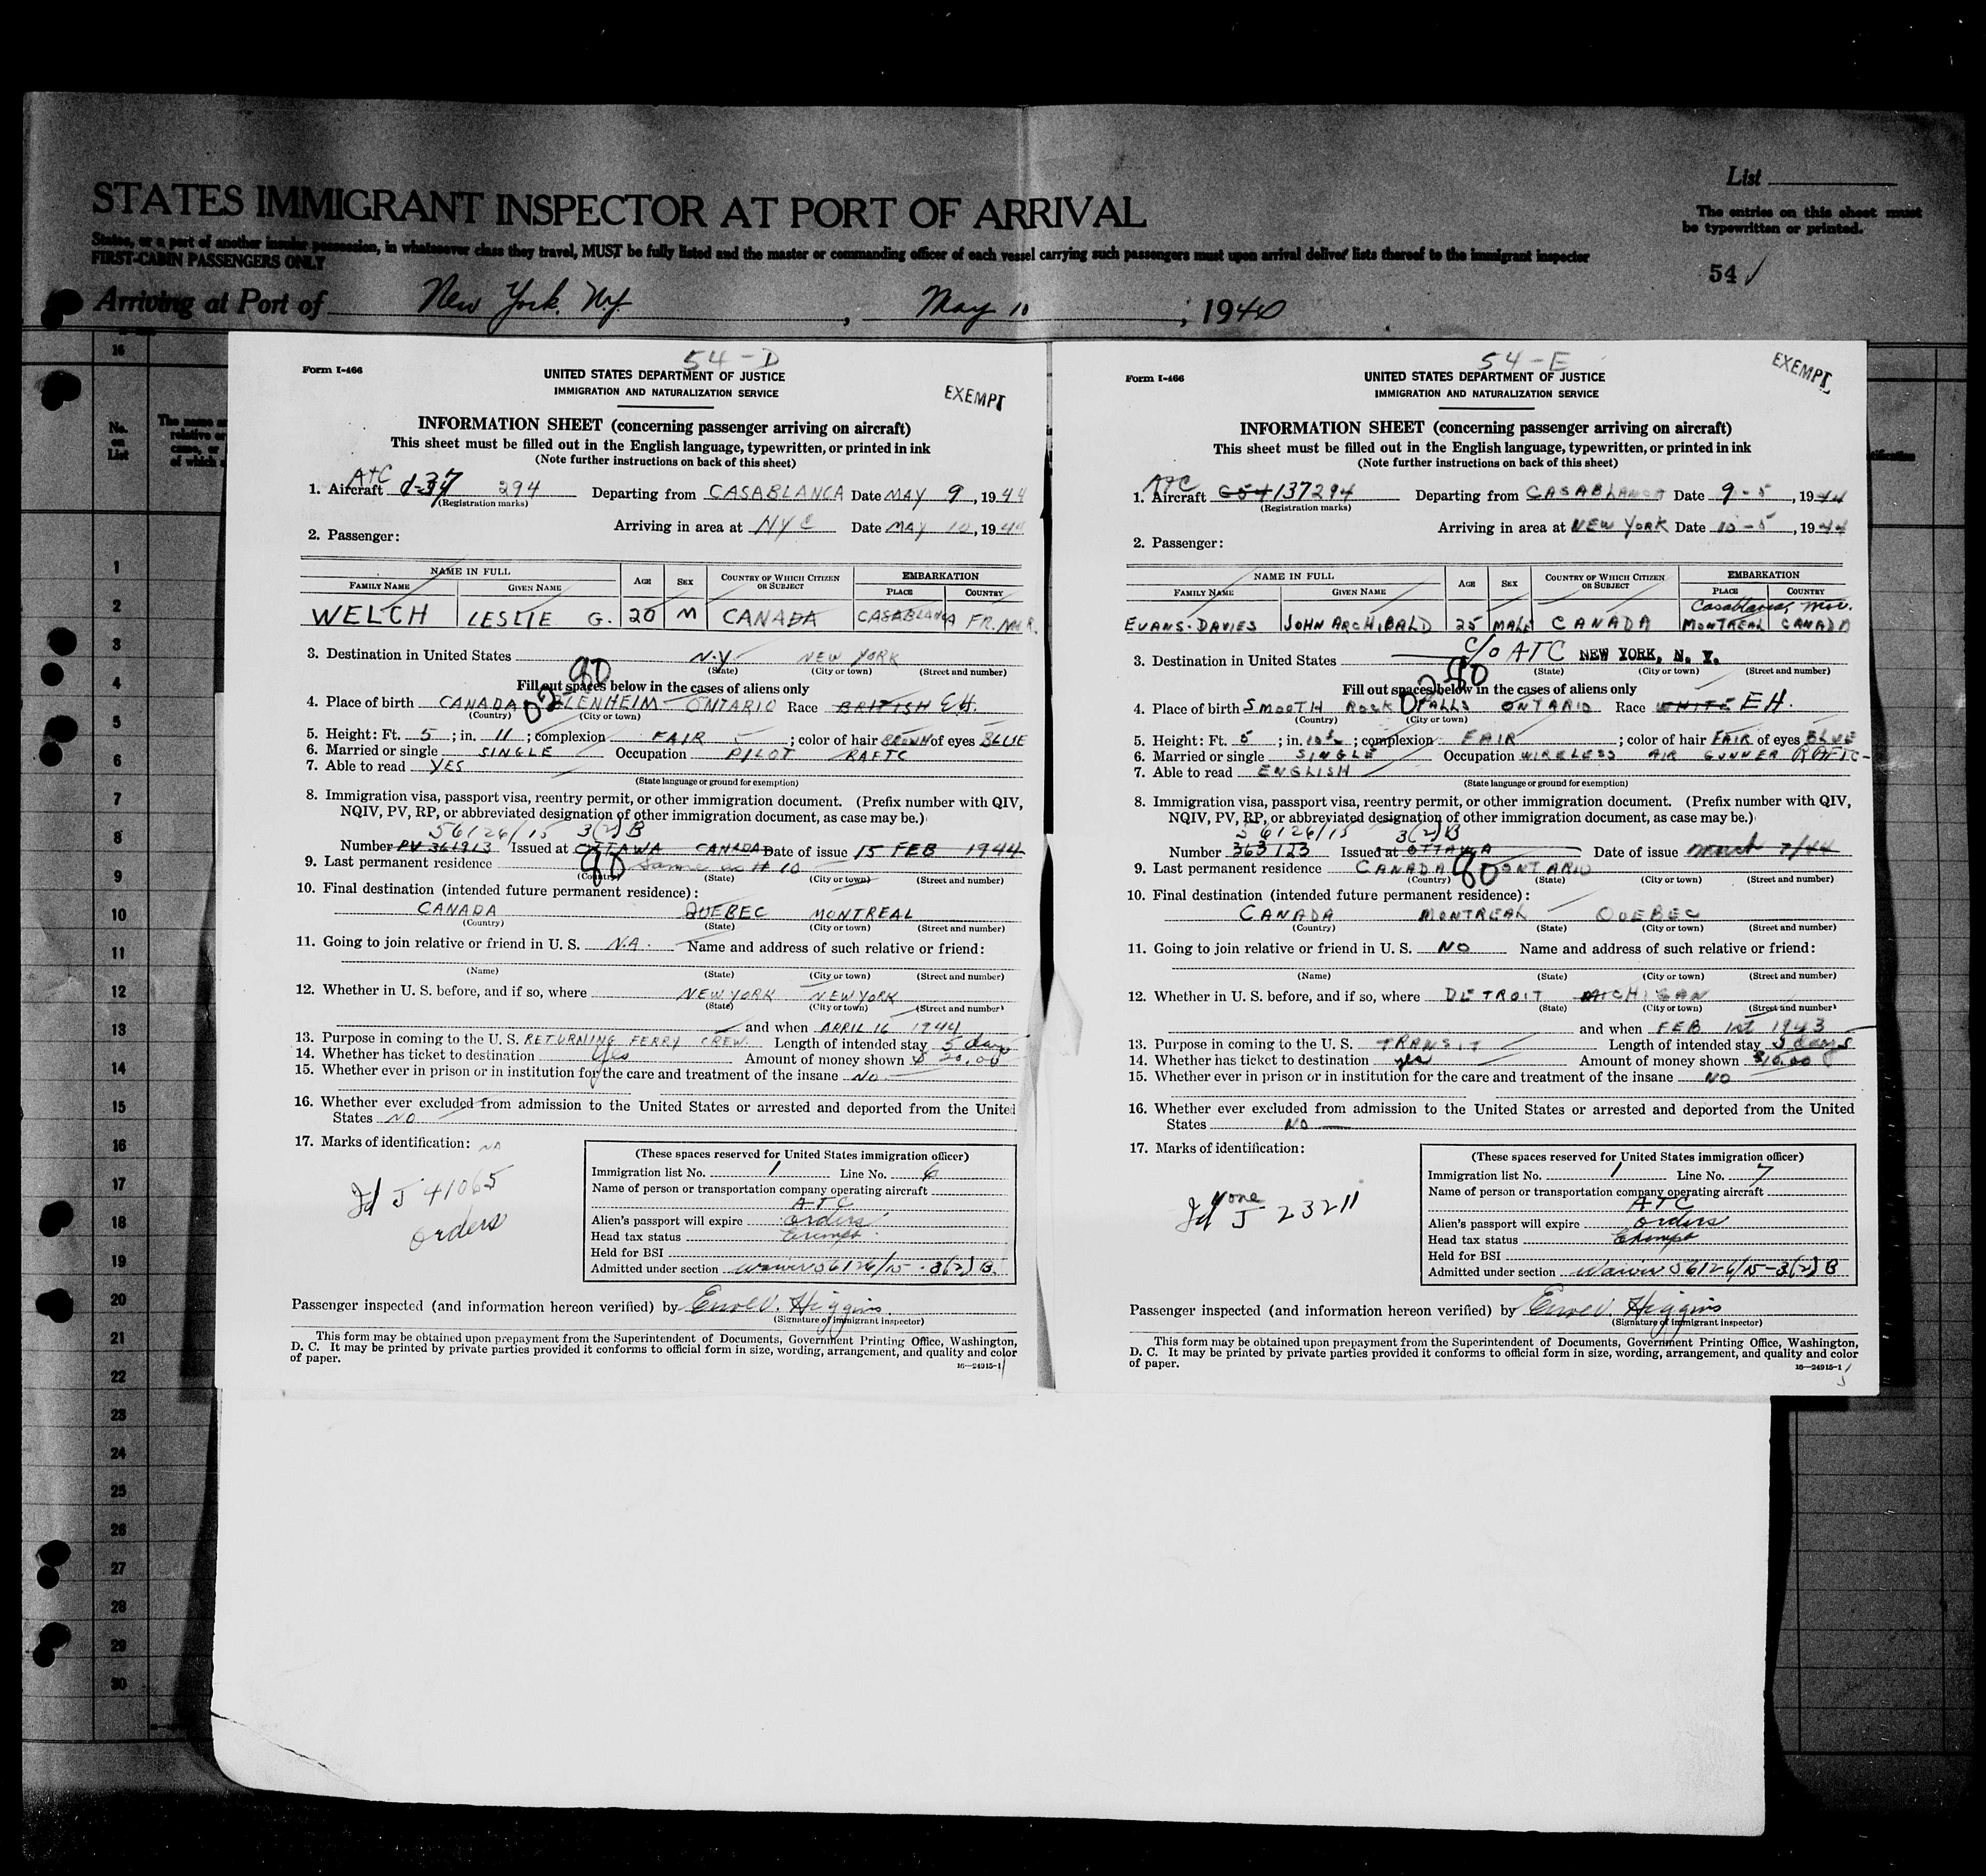 List
STATES IMMIGRANT INSPECTOR AT PORT OF ARRIVAL
The entries on this sheet must
be typewritten or printed.
States, or a port of another insular possession, in whatsoever class they travel, MUST be fully listed and the master or commanding officer of each vessel carrying such passengers must upon arrival deliver lists thereof to the immigrant inspector
FIRST-CABIN PASSENGERS ONLY
54
Arriving at Port of New York, N.Y. , May 10 , 1940
16
No.
on
List
1
2
3
4
5
6
7
8
9
10
11
12
13
14
15
16
17
18
19
20
21
22
23
24
25
26
27
28
29
30
54-D
Form I-466
UNITED STATES DEPARTMENT OF JUSTICE
IMMIGRATION AND NATURALIZATION SERVICE
EXEMPT
INFORMATION SHEET (concerning passenger arriving on aircraft)
This sheet must be filled out in the English language, typewritten, or printed in ink
(Note further instructions on back of this sheet)
ATC
1. Aircraft 294 Departing from CASABLANCA Date MAY 9, 1944
(Registration marks)
Arriving in area at NYC Date MAY 10, 1944
2. Passenger:
NAME IN FULL AGE SEX COUNTRY OF WHICH CITIZEN OR SUBJECT EMBARKATION
FAMILY NAME GIVEN NAME PLACE COUNTRY
WELCH LESLIE G. 20 M CANADA CASABLANCA FR. MOR.
3. Destination in United States N.Y. NEW YORK
(State) (City or town) (Street and number)
90
Fill out spaces below in the cases of aliens only
02
4. Place of birth CANADA BLENHEIM ONTARIO Race BRITISH E.H.
(Country) (City or town)
5. Height: Ft. 5 ; in. 11 ; complexion FAIR ; color of hair BROWN of eyes BLUE
6. Married or single SINGLE Occupation PILOT RAFTC
7. Able to read YES
(State language or ground for exemption)
8. Immigration visa, passport visa, reentry permit, or other immigration document. (Prefix number with QIV,
NQIV, PV, RP, or abbreviated designation of other immigration document, as case may be.)
56126/15 3(2)B
Number PV 361913 Issued at OTTAWA CANADA Date of issue 15 FEB 1944
9. Last permanent residence 90 Same as # 10
(Country) (State) (City or town) (Street and number)
10. Final destination (intended future permanent residence):
CANADA QUEBEC MONTREAL
(Country) (State) (City or town) (Street and number)
11. Going to join relative or friend in U. S. N.A. Name and address of such relative or friend:
(Name) (State) (City or town) (Street and number)
12. Whether in U. S. before, and if so, where NEW YORK NEW YORK
(State) (City or town) (Street and number)
and when APRIL 16 1944
13. Purpose in coming to the U. S. RETURNING FERRY CREW Length of intended stay 5 days
14. Whether has ticket to destination Yes Amount of money shown $ 20.00
15. Whether ever in prison or in institution for the care and treatment of the insane NO
16. Whether ever excluded from admission to the United States or arrested and deported from the United
States NO
17. Marks of identification: NA
Id J 41065
orders
(These spaces reserved for United States immigration officer)
Immigration list No. 1 Line No. 6
Name of person or transportation company operating aircraft
ATC
Alien's passport will expire orders
Head tax status Exempt
Held for BSI
Admitted under section waiver 56126/15 - 3(2) B.
Passenger inspected (and information hereon verified) by Higgins
(Signature of immigrant inspector)
This form may be obtained upon prepayment from the Superintendent of Documents, Government Printing Office, Washington,
D. C. It may be printed by private parties provided it conforms to official form in size, wording, arrangement, and quality and color
of paper.
16—24915-1
54-E
Form I-466
UNITED STATES DEPARTMENT OF JUSTICE
IMMIGRATION AND NATURALIZATION SERVICE
EXEMPT
INFORMATION SHEET (concerning passenger arriving on aircraft)
This sheet must be filled out in the English language, typewritten, or printed in ink
(Note further instructions on back of this sheet)
ATC
1. Aircraft C54 137294 Departing from CASABLANCA Date 9-5, 1944
(Registration marks)
Arriving in area at NEW YORK Date 10-5, 1944
2. Passenger:
NAME IN FULL AGE SEX COUNTRY OF WHICH CITIZEN OR SUBJECT EMBARKATION
FAMILY NAME GIVEN NAME PLACE COUNTRY
Casablanca, Mor.
EVANS-DAVIES JOHN ARCHIBALD 25 MALE CANADA MONTREAL CANADA
3. Destination in United States C/O ATC NEW YORK, N. Y.
(State) (City or town) (Street and number)
90
Fill out spaces below in the cases of aliens only
02
4. Place of birth SMOOTH ROCK FALLS ONTARIO Race WHITE EH.
(Country) (City or town)
5. Height: Ft. 5 ; in. 10½ ; complexion FAIR ; color of hair FAIR of eyes BLUE
6. Married or single SINGLE Occupation WIRELESS AIR GUNNER RAFTC
7. Able to read ENGLISH
(State language or ground for exemption)
8. Immigration visa, passport visa, reentry permit, or other immigration document. (Prefix number with QIV,
NQIV, PV, RP, or abbreviated designation of other immigration document, as case may be.)
56126/15 3(2)B
Number 363123 Issued at OTTAWA Date of issue March 7/44
9. Last permanent residence CANADA 90 ONTARIO
(Country) (State) (City or town) (Street and number)
10. Final destination (intended future permanent residence):
CANADA MONTREAL QUEBEC
(Country) (State) (City or town) (Street and number)
11. Going to join relative or friend in U. S. NO Name and address of such relative or friend:
(Name) (State) (City or town) (Street and number)
12. Whether in U. S. before, and if so, where DETROIT MICHIGAN
(State) (City or town) (Street and number)
and when FEB 1st 1943
13. Purpose in coming to the U. S. TRANSIT Length of intended stay 5 days
14. Whether has ticket to destination yes Amount of money shown $10.00
15. Whether ever in prison or in institution for the care and treatment of the insane NO
16. Whether ever excluded from admission to the United States or arrested and deported from the United
States NO
17. Marks of identification:
None
Id J 23211
(These spaces reserved for United States immigration officer)
Immigration list No. 1 Line No. 7
Name of person or transportation company operating aircraft
ATC
Alien's passport will expire orders
Head tax status Exempt
Held for BSI
Admitted under section Waiver 56126/15-3(2) B
Passenger inspected (and information hereon verified) by Higgins
(Signature of immigrant inspector)
This form may be obtained upon prepayment from the Superintendent of Documents, Government Printing Office, Washington,
D. C. It may be printed by private parties provided it conforms to official form in size, wording, arrangement, and quality and color
of paper.
16—24915-1